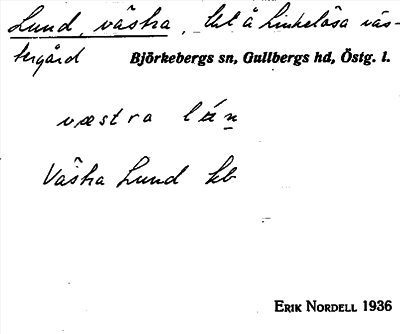 Lund, västra, lht å Linkelösa väs-
tergård Björkebergs sn, Gullbergs hd, Östg. l.
væstra lún
Västra Lund kb
ERIK NORDELL 1936